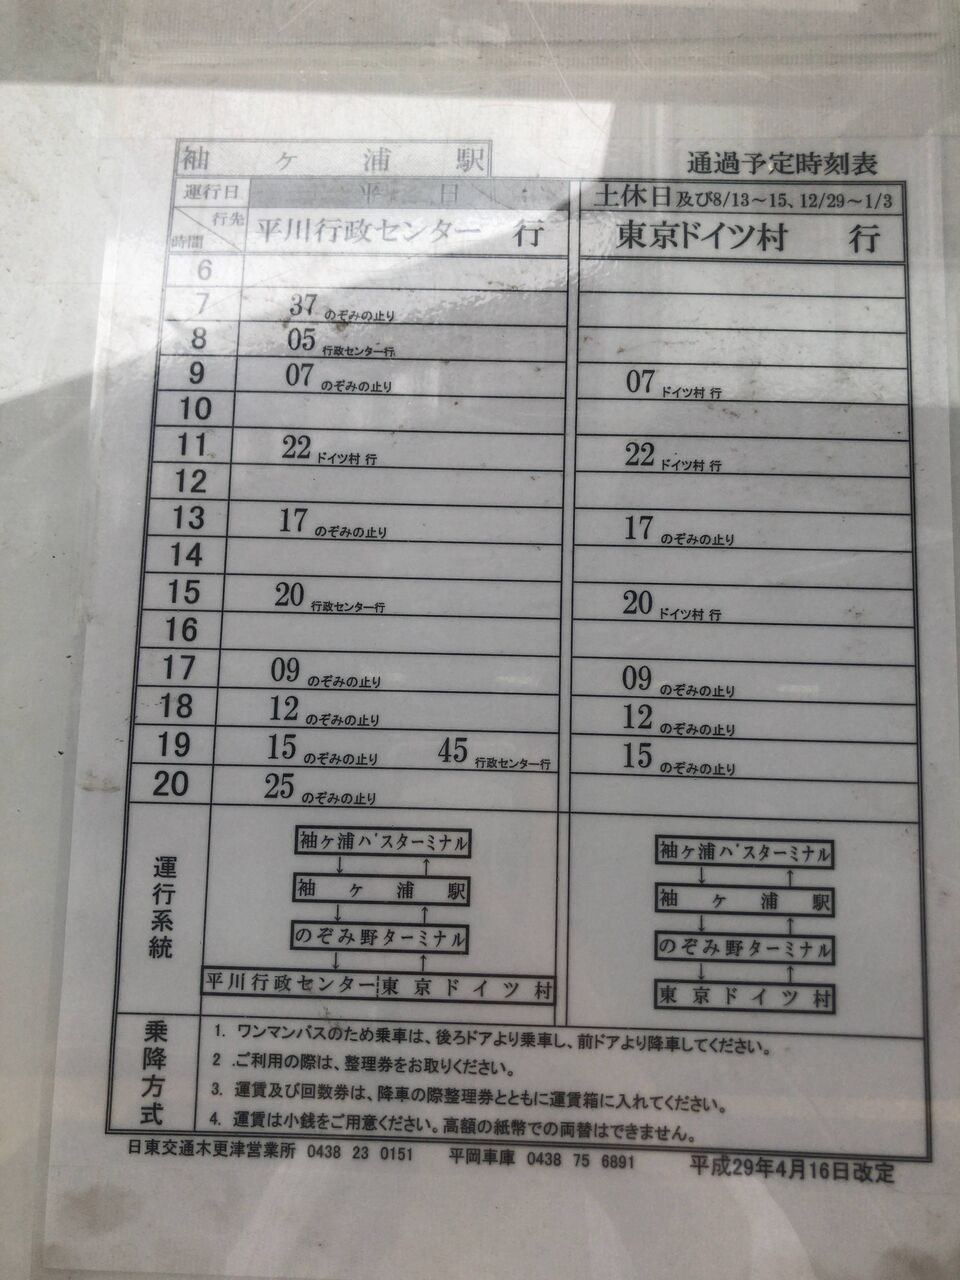 袖ヶ浦駅 通過予定時刻表
運行日 平日 土休日及び8/13～15、12/29～1/3
行先 時間 平川行政センター 行 東京ドイツ村 行
6
7 37 のぞみの止り
8 05 行政センター行
9 07 のぞみの止り 07 ドイツ村 行
10
11 22 ドイツ村 行 22 ドイツ村 行
12
13 17 のぞみの止り 17 のぞみの止り
14
15 20 行政センター行 20 ドイツ村 行
16
17 09 のぞみの止り 09 のぞみの止り
18 12 のぞみの止り 12 のぞみの止り
19 15 のぞみの止り 45 行政センター行 15 のぞみの止り
20 25 のぞみの止り
運行系統
袖ヶ浦バスターミナル 袖ヶ浦バスターミナル
↓ ↑ ↓ ↑
袖ヶ浦駅 袖ヶ浦駅
↓ ↑ ↓ ↑
のぞみ野ターミナル のぞみ野ターミナル
↓ ↑ ↓ ↑
平川行政センター 東京ドイツ村 東京ドイツ村
乗降方式
1. ワンマンバスのため乗車は、後ろドアより乗車し、前ドアより降車してください。
2 .ご利用の際は、整理券をお取りください。
3. 運賃及び回数券は、降車の際整理券とともに運賃箱に入れてください。
4. 運賃は小銭をご用意ください。高額の紙幣での両替はできません。
日東交通木更津営業所 0438 23 0151 平岡車庫 0438 75 6891 平成29年4月16日改定